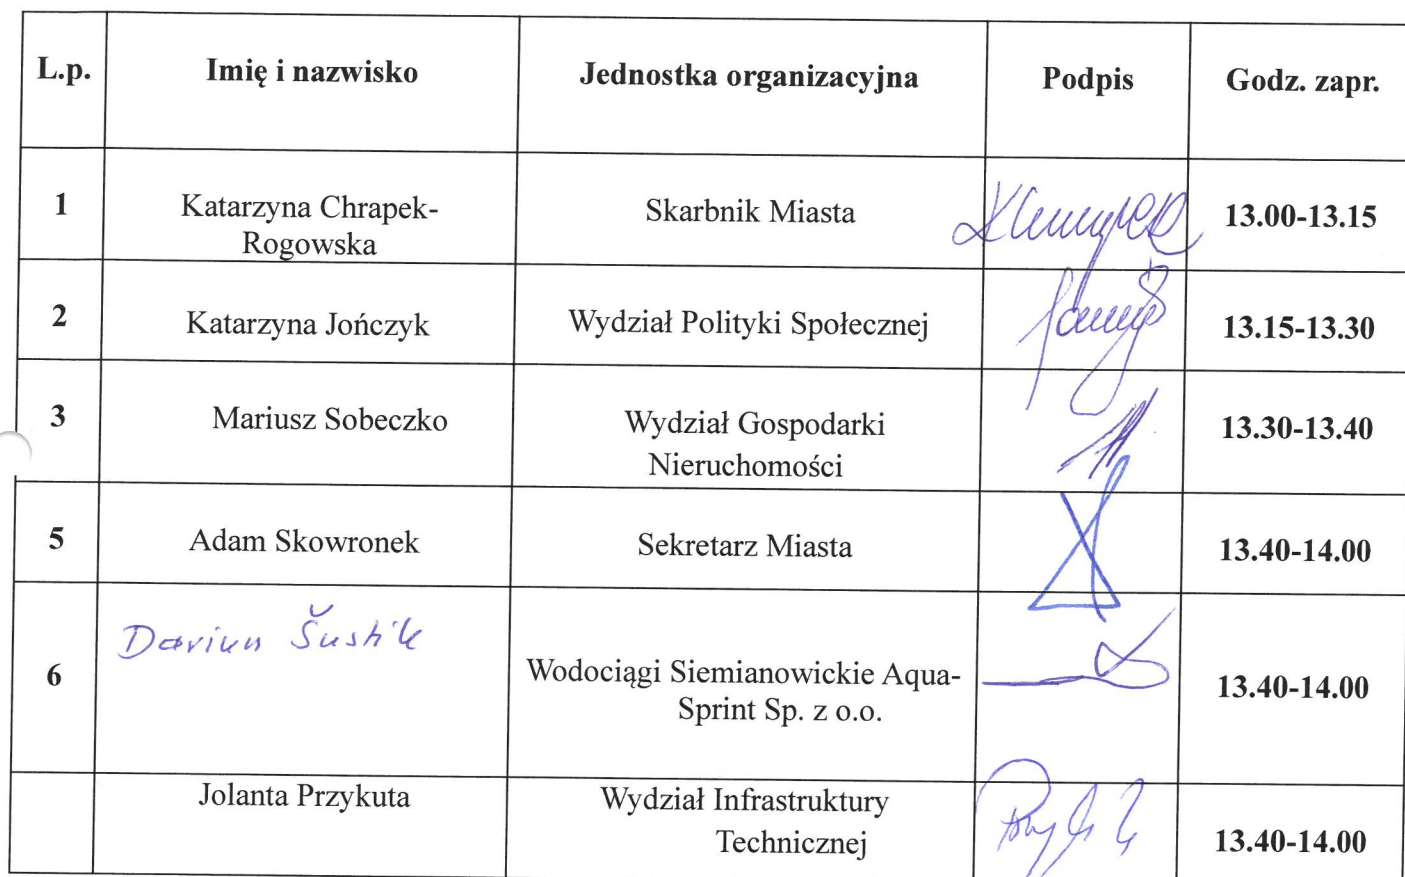 L.p. Imię i nazwisko Jednostka organizacyjna Podpis Godz. zapr.
1 Katarzyna Chrapek- Skarbnik Miasta 13.00-13.15
Rogowska
2 Katarzyna Jończyk Wydział Polityki Społecznej 13.15-13.30
3 Mariusz Sobeczko Wydział Gospodarki 13.30-13.40
Nieruchomości
5 Adam Skowronek Sekretarz Miasta 13.40-14.00
Šustik
6 Wodociągi Siemianowickie Aqua- 13.40-14.00
Sprint Sp. z o.o.
Jolanta Przykuta Wydział Infrastruktury
Technicznej 13.40-14.00